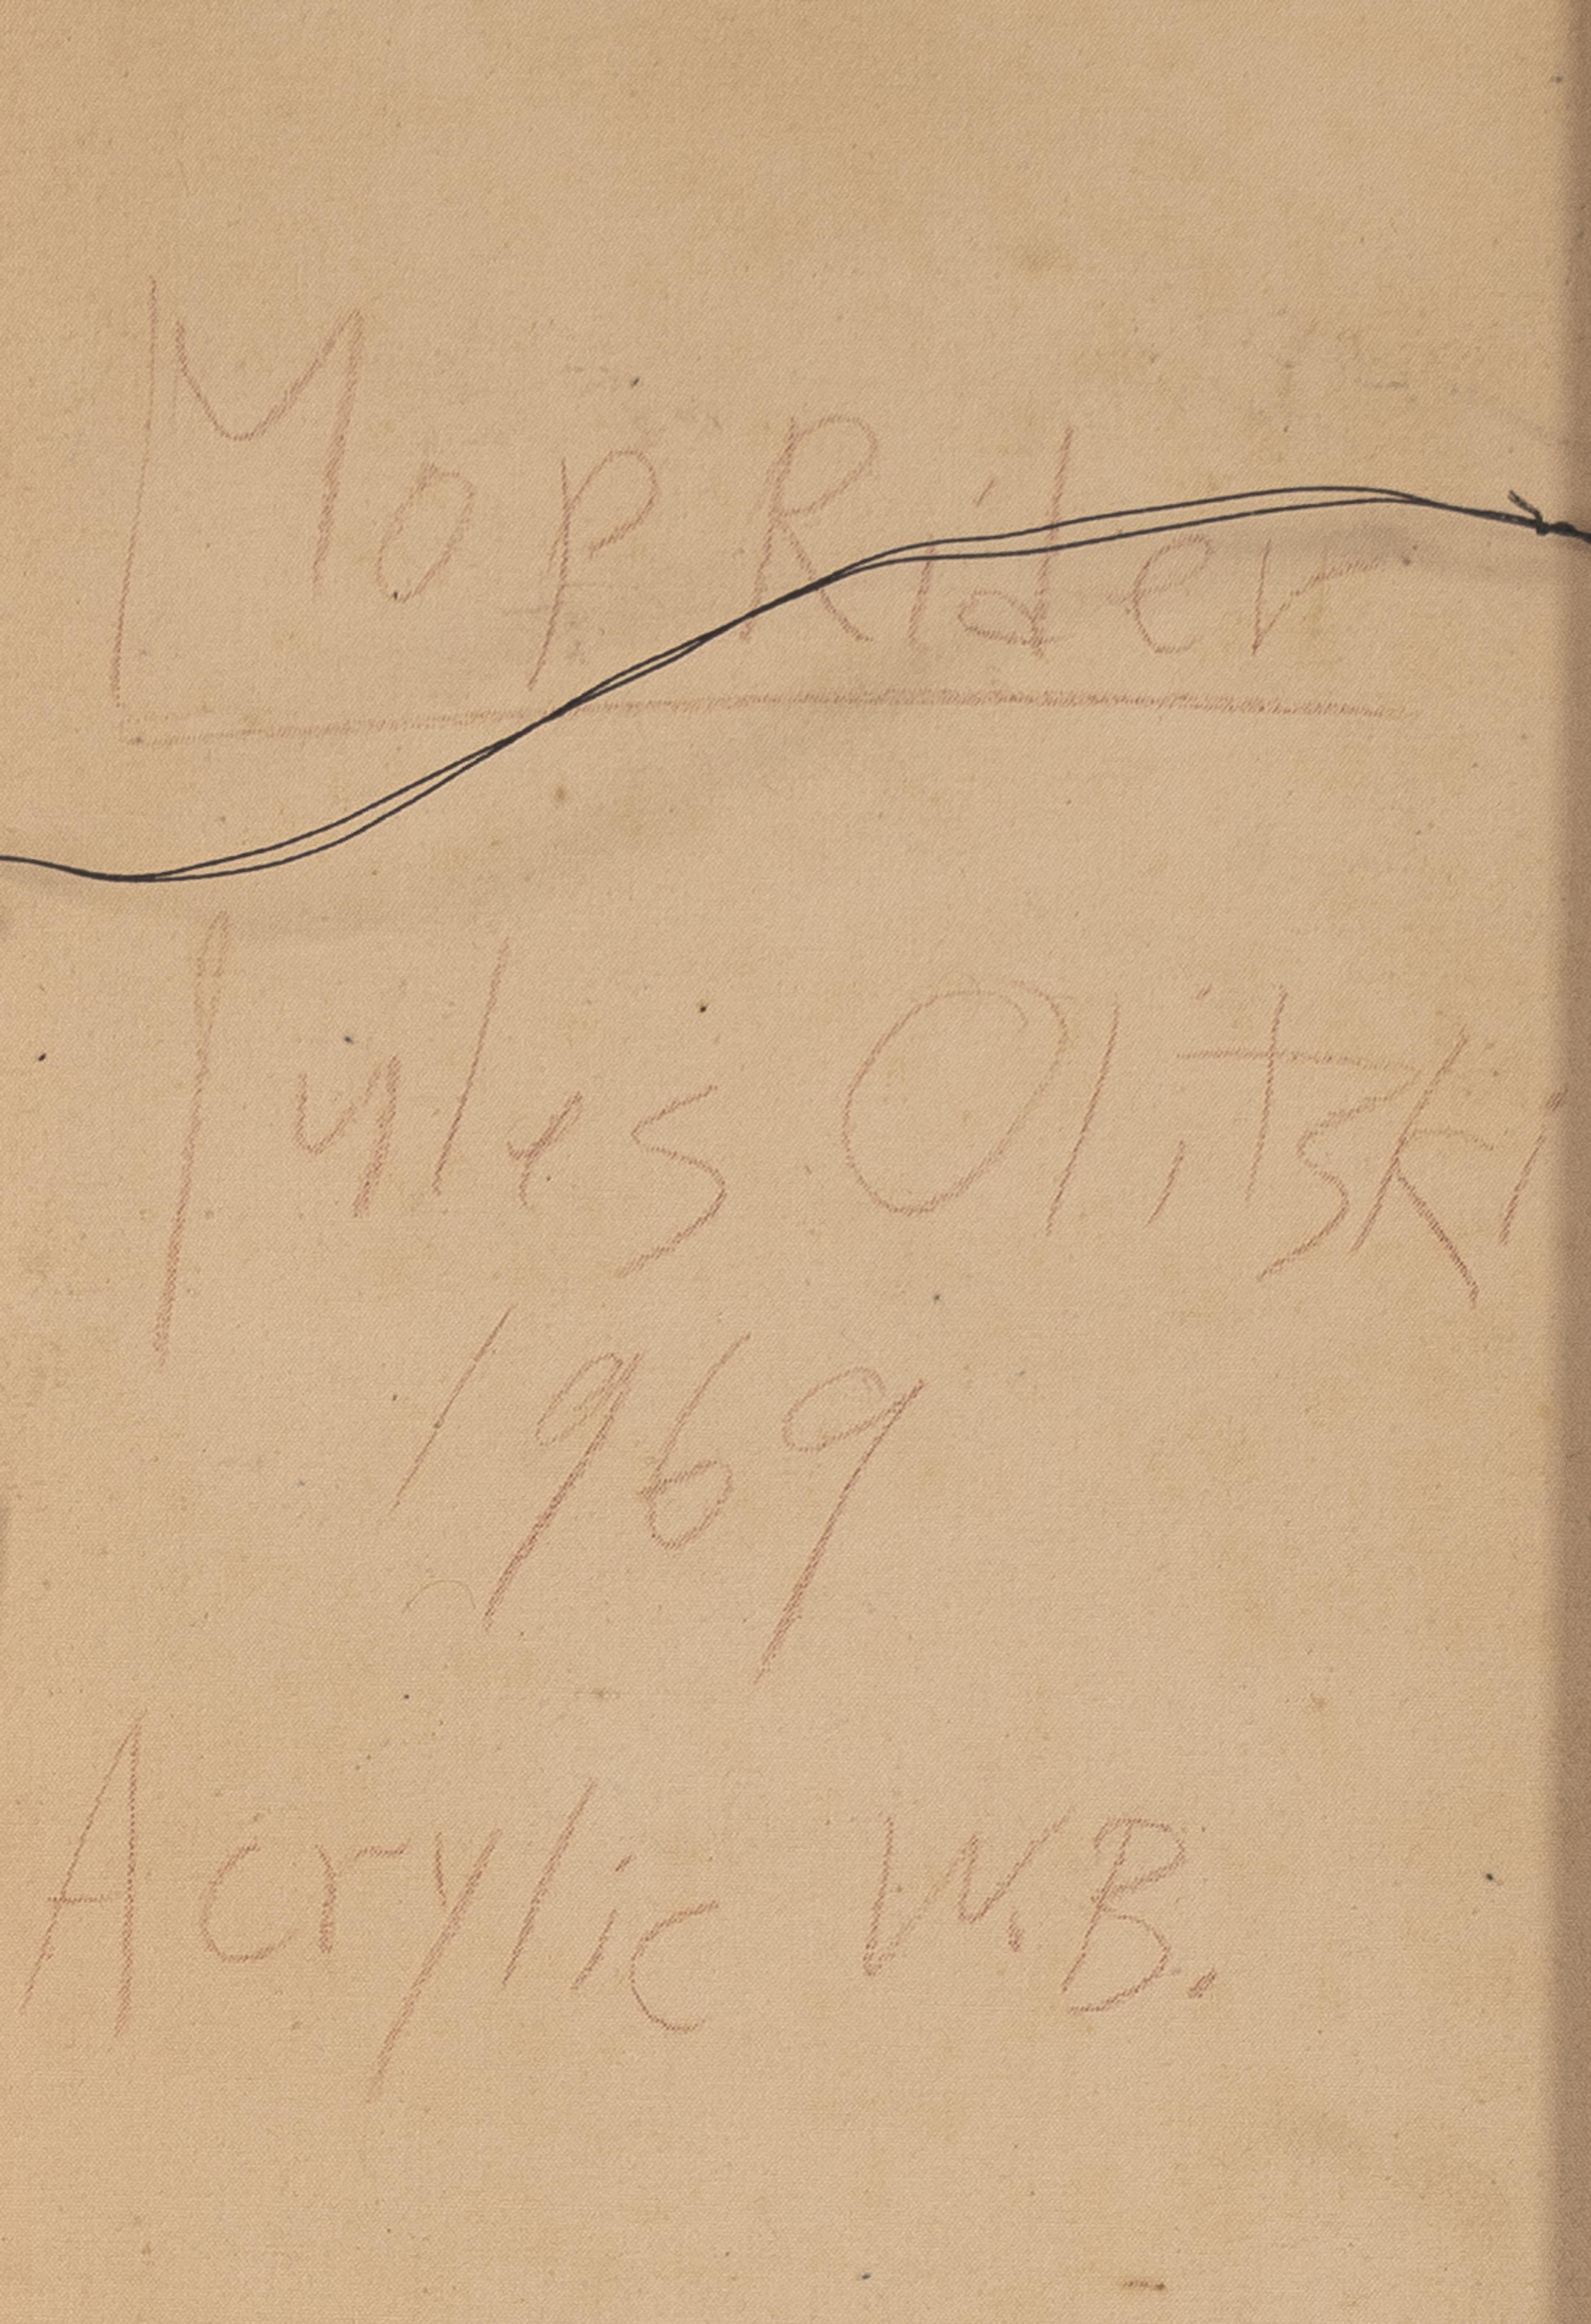 Mop Rider
Jules Olitski
1969
Acrylic W.B.